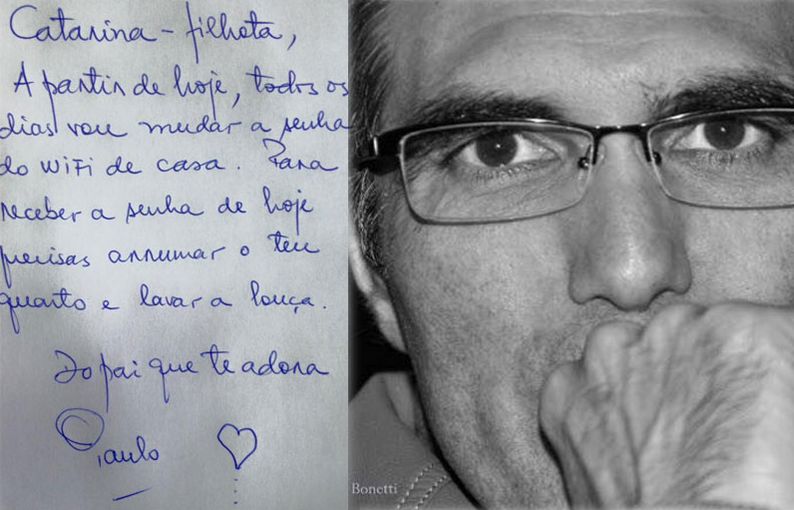 Catarina - filhota,
A partir de hoje, todos os
dias vou mudar a senha
do WiFi de casa. Para
receber a senha de hoje
precisas arrumar o teu
quarto e lavar a louça.
Do pai que te adora
Paulo
Bonetti